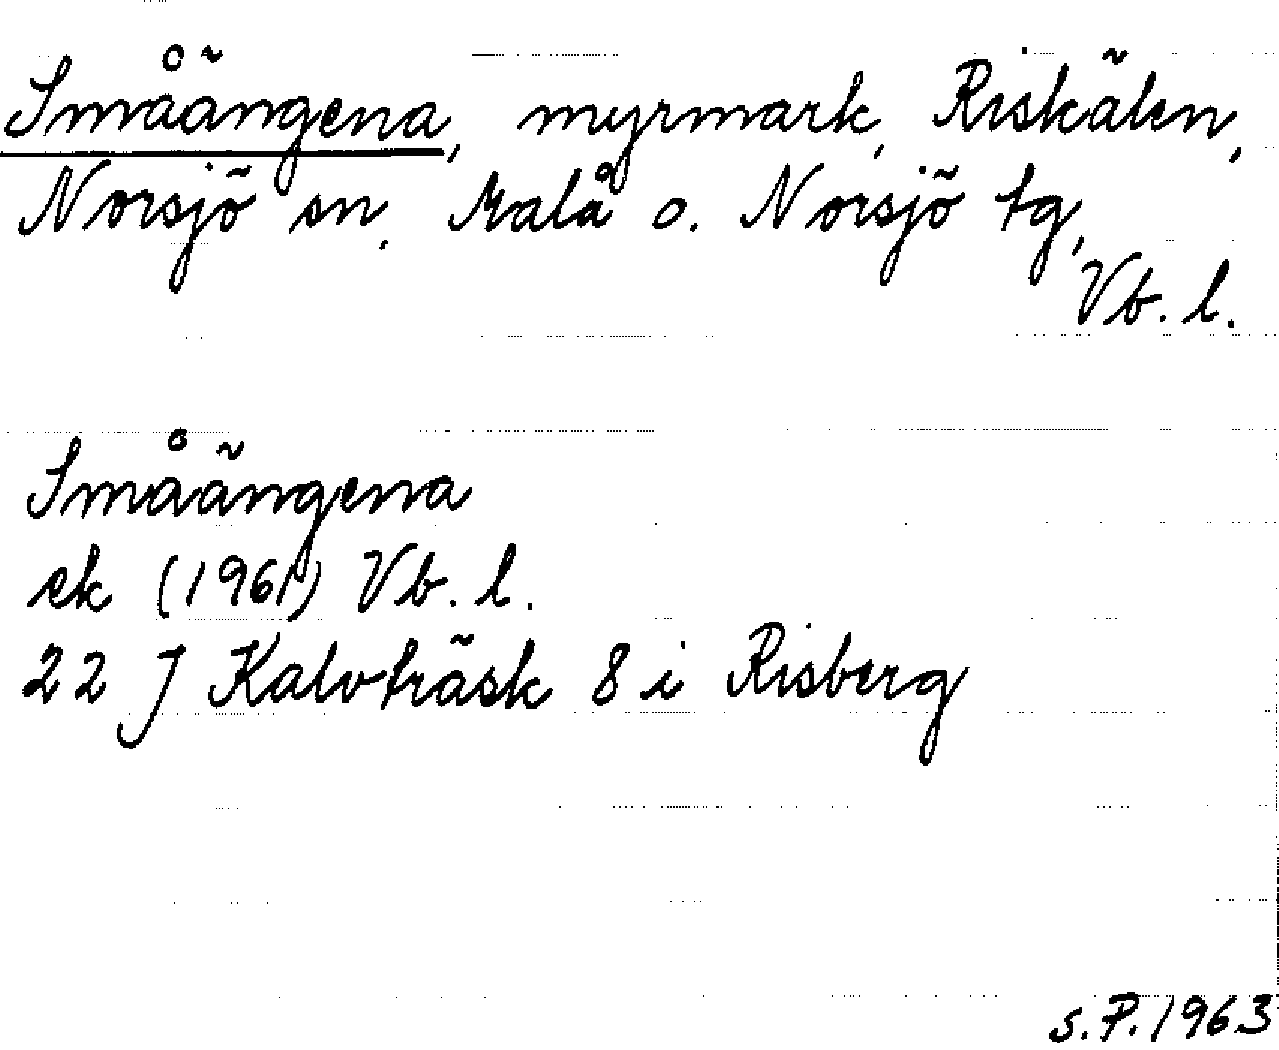 Småängena, myrmark, Riskälen,
Norsjö sn, Malå o. Norsjö tg,
Vb. l.
Småängena
ek (1961) Vb. l.
22 J Kalvträsk 8 i Risberg
s. P. 1963